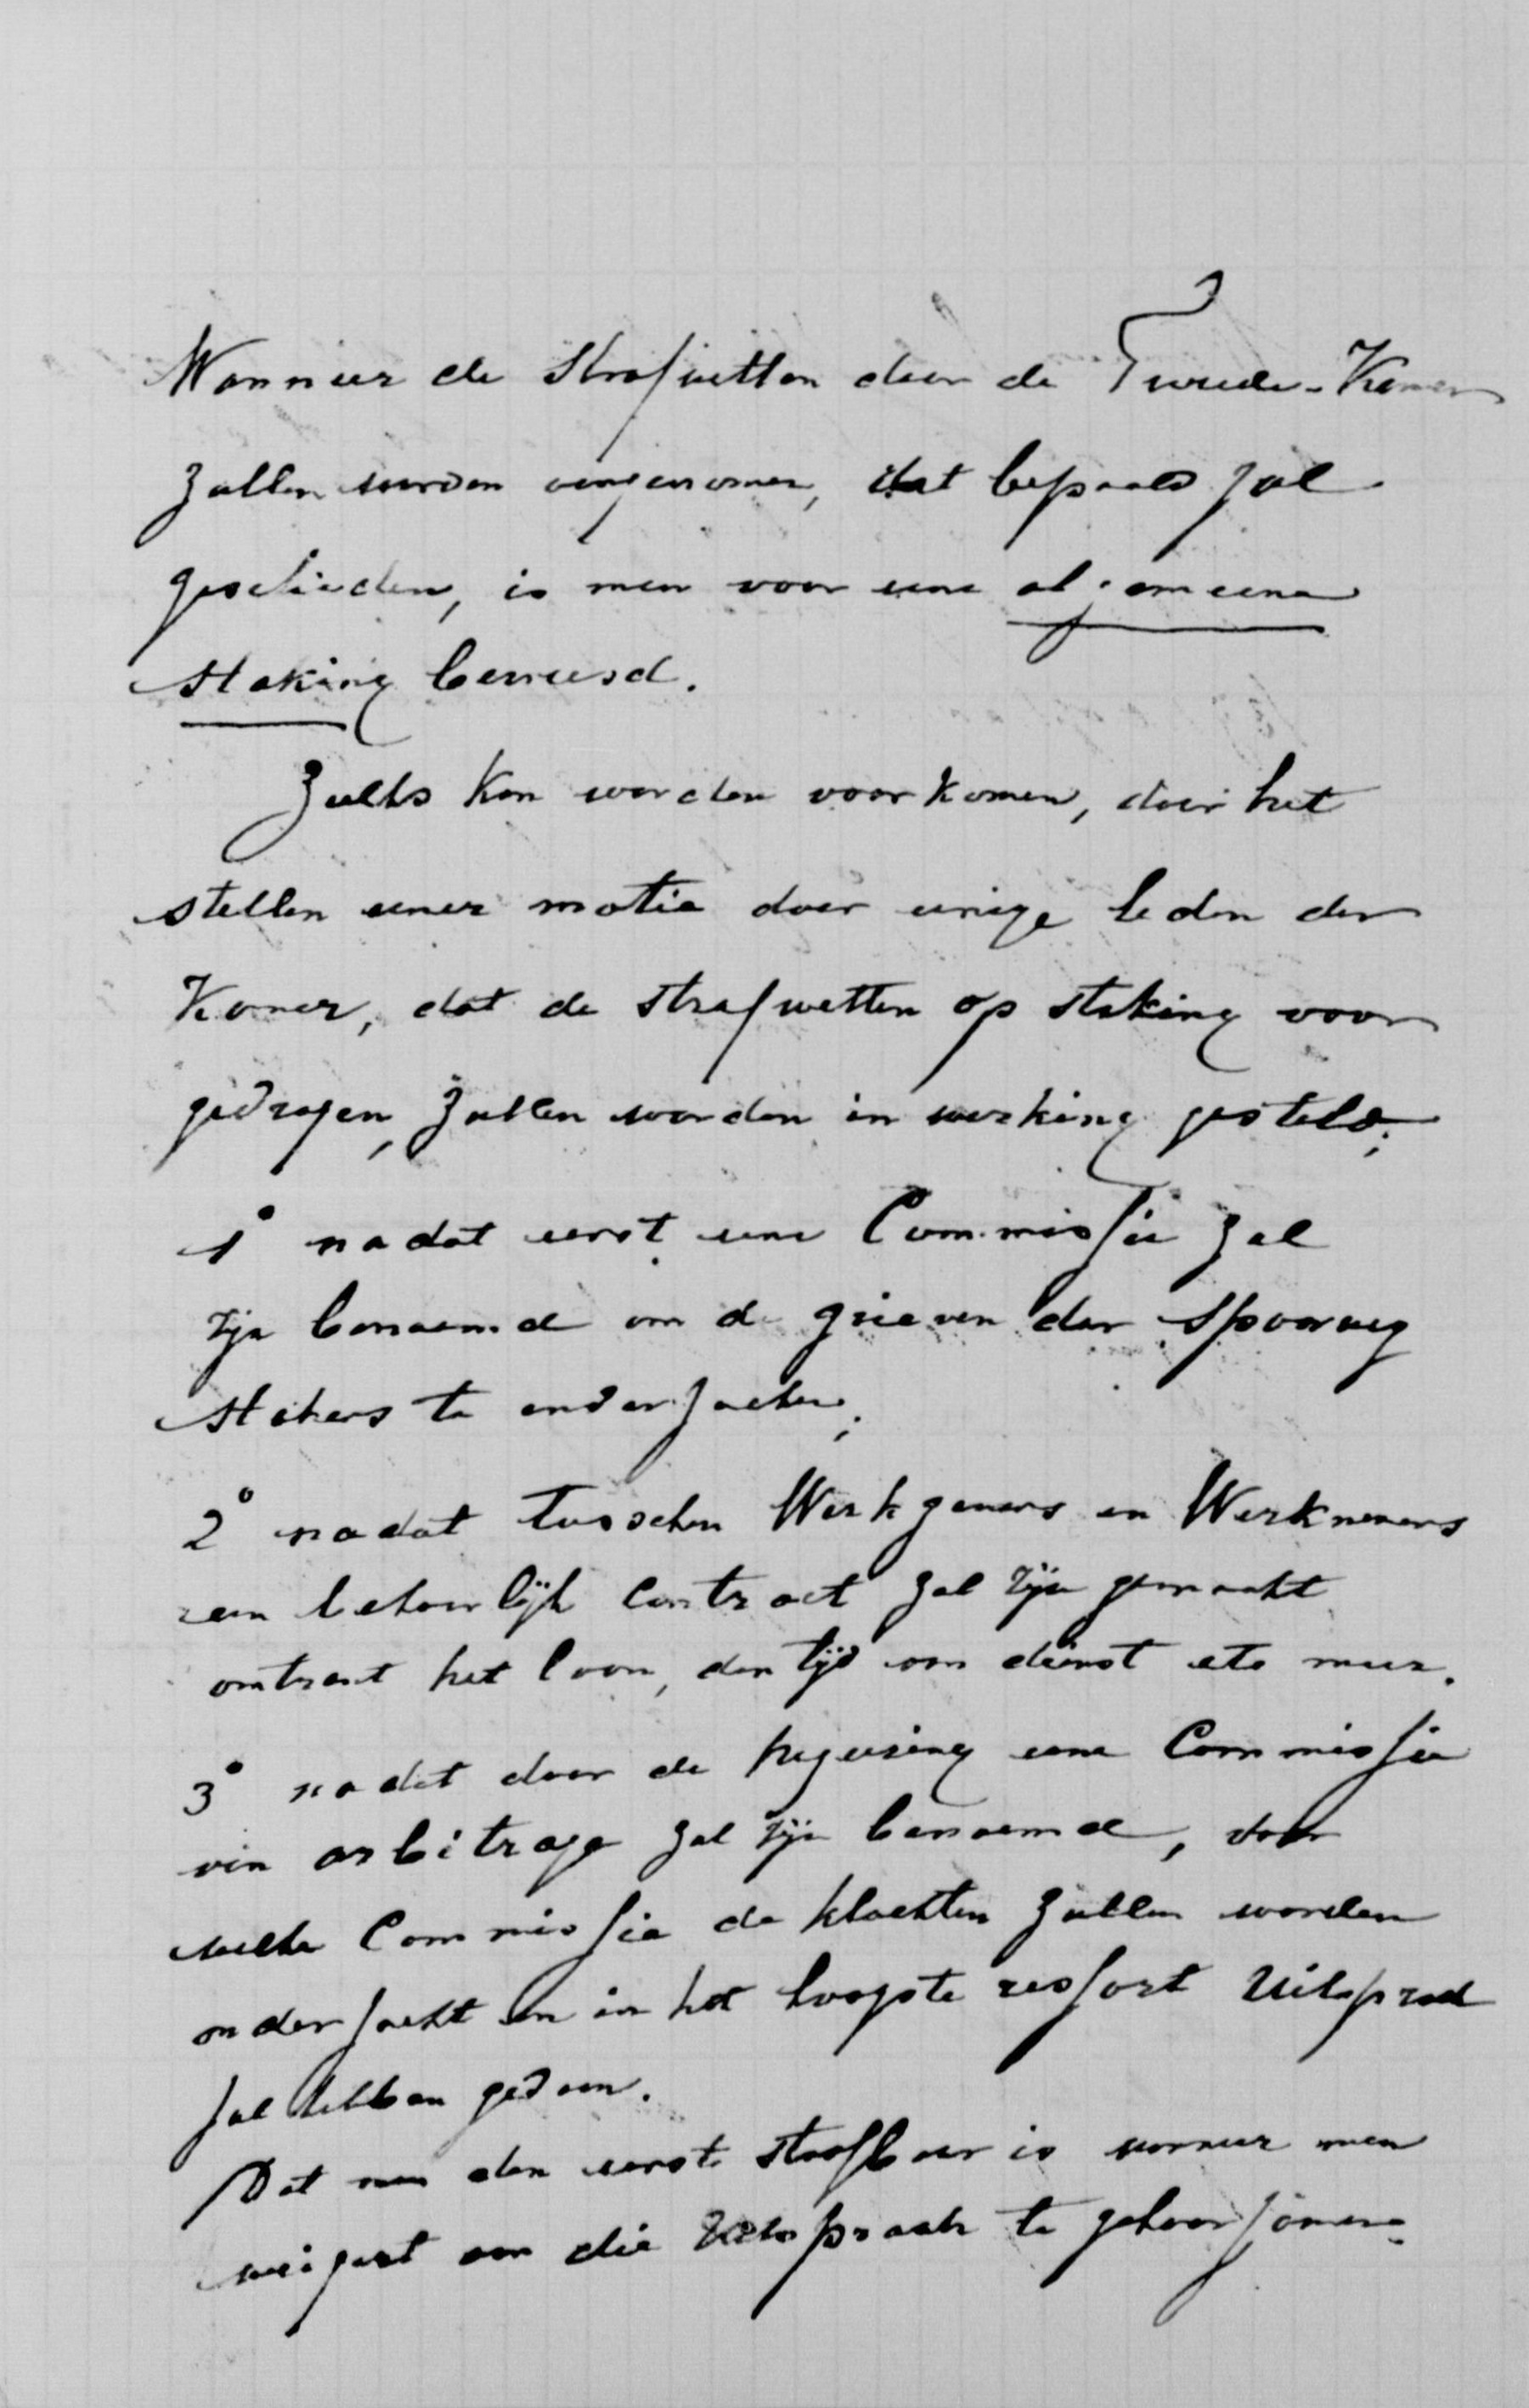 Wanneer de Strafwetten door de Tweede-Kamer
zullen worden aangenomen, dat bepaald zal
geschieden, is men voor eene algemeene
staking bevreesd.
Zulks kan worden voorkomen, door het
stellen eener motie door eenige leden der
Kamer, dat de strafwetten op staking voor
gedragen, zullen worden in werking gesteld;
1° nadat eerst eene Commissie zal
zijn benoemd om de grieven der Spoorweg
stakers te onderzoeken;
2° nadat tusschen Werkgevers en Werknemers
een behoorlijk Contract zal zijn gemaakt
omtrent het loon, den tijd van dienst etc meer.
3° nadat door de regeering eene Commissie
van arbitrage zal zijn benoemd, door
welke Commissie de klachten zullen worden
onderzocht en in het hoogste ressort Uitspraak
zal hebben gedaan.
Dat men dan eerst strafbaar is wanneer men
weigert aan die Uitspraak te gehoorzamen.